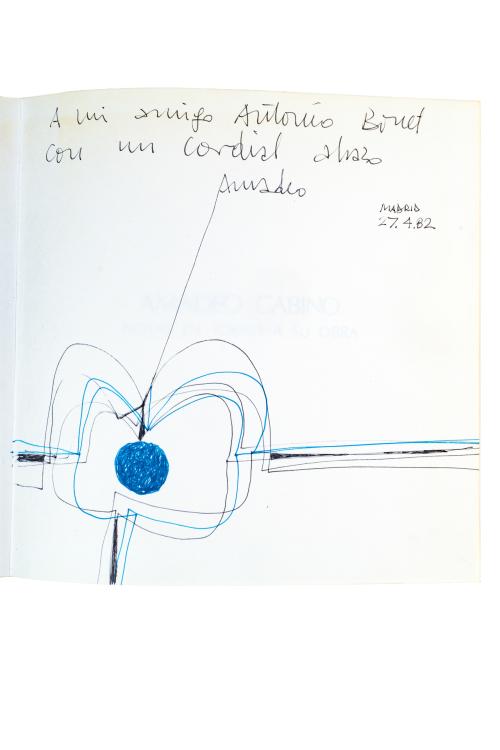 A mi amigo Antonio Bonet
con un cordial abrazo
Amadeo
MADRID
27.4.82
AMADEO GABINO
NOTAS EN TORNO A SU OBRA